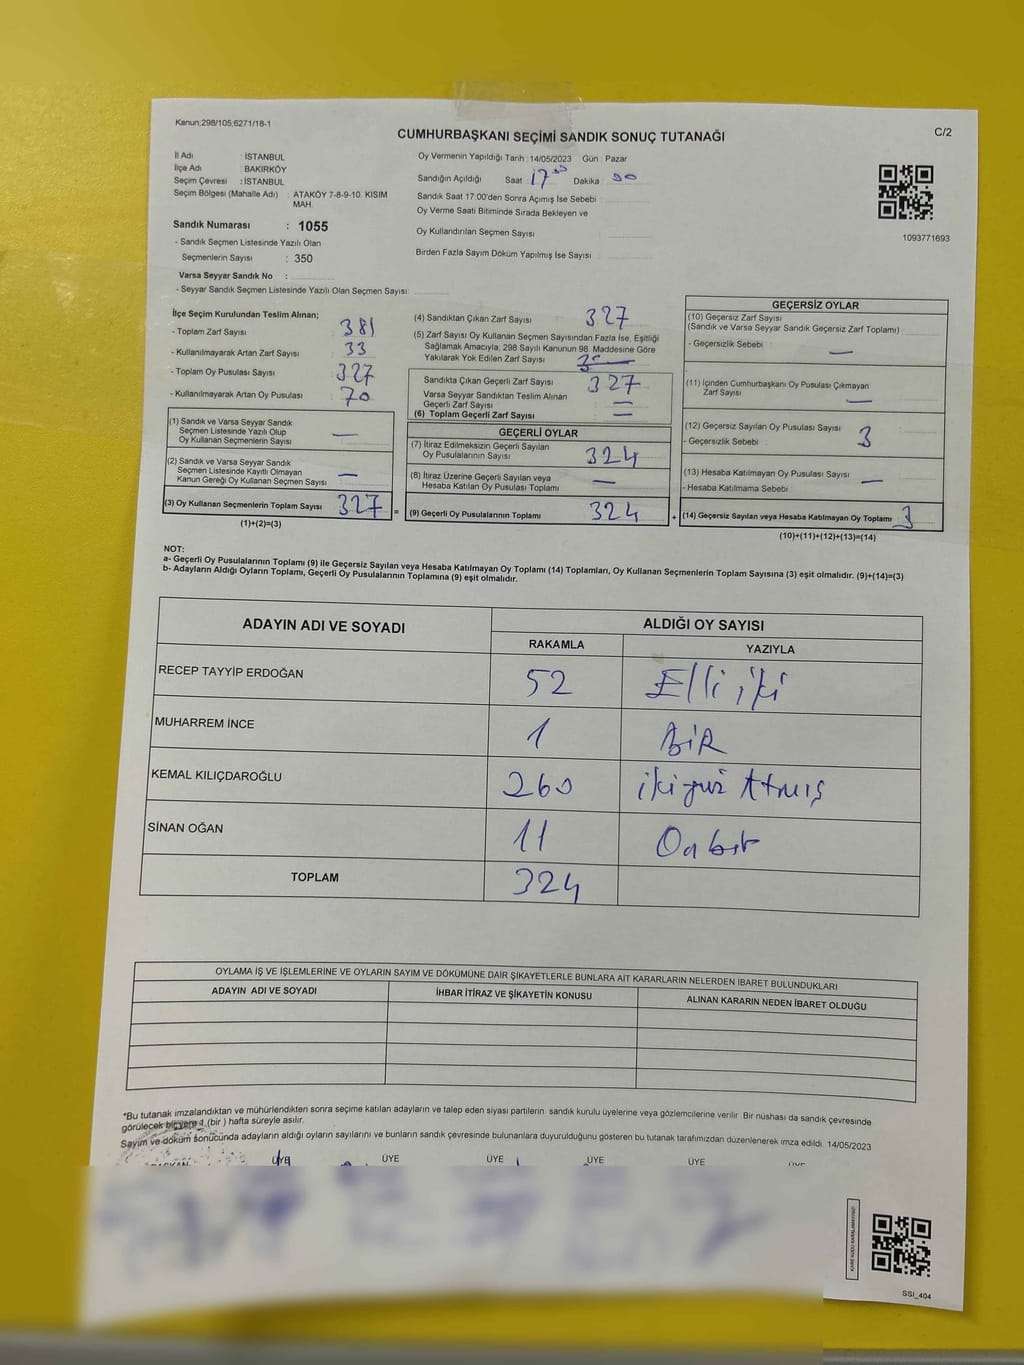 Kanun:298/105,6271/18-1
CUMHURBAŞKANI SEÇİMİ SANDIK SONUÇ TUTANAĞI
C/2
İl Adı : İSTANBUL
İlçe Adı : BAKIRKÖY
Seçim Çevresi : İSTANBUL
Seçim Bölgesi (Mahalle Adı) : ATAKÖY 7-8-9-10. KISIM MAH.
Sandık Numarası : 1055
- Sandık Seçmen Listesinde Yazılı Olan
Seçmenlerin Sayısı : 350
Varsa Seyyar Sandık No :
- Seyyar Sandık Seçmen Listesinde Yazılı Olan Seçmen Sayısı:
Oy Vermenin Yapıldığı Tarih : 14/05/2023 Gün : Pazar
Sandığın Açıldığı Saat : 17 Dakika :
Sandık Saat 17:00'den Sonra Açımış İse Sebebi
Oy Verme Saati Bitiminde Sırada Bekleyen ve
Oy Kullandırılan Seçmen Sayısı
Birden Fazla Sayım Döküm Yapılmış İse Sayısı
1093771693
İlçe Seçim Kurulundan Teslim Alınan;
- Toplam Zarf Sayısı 381
- Kullanılmayarak Artan Zarf Sayısı 33
- Toplam Oy Pusulası Sayısı 327
- Kullanılmayarak Artan Oy Pusulası 70
(1) Sandık ve Varsa Seyyar Sandık
Seçmen Listesinde Yazılı Olup
Oy Kullanan Seçmenlerin Sayısı —
(2) Sandık ve Varsa Seyyar Sandık
Seçmen Listesinde Kayıtlı Olmayan
Kanun Gereği Oy Kullanan Seçmen Sayısı : —
(3) Oy Kullanan Seçmenlerin Toplam Sayısı 327 =
(1)+(2)=(3)
(4) Sandıktan Çıkan Zarf Sayısı 327
(5) Zarf Sayısı Oy Kullanan Seçmen Sayısından Fazla İse, Eşitliği
Sağlamak Amacıyla, 298 Sayılı Kanunun 98. Maddesine Göre
Yakılarak Yok Edilen Zarf Sayısı
Sandıkta Çıkan Geçerli Zarf Sayısı 327
Varsa Seyyar Sandıktan Teslim Alınan
Geçerli Zarf Sayısı —
(6) Toplam Geçerli Zarf Sayısı —
GEÇERLİ OYLAR
(7) İtiraz Edilmeksizin Geçerli Sayılan
Oy Pusulalarının Sayısı 324
(8) İtiraz Üzerine Geçerli Sayılan veya
Hesaba Katılan Oy Pusulası Toplamı —
(9) Geçerli Oy Pusulalarının Toplamı 324 +
GEÇERSİZ OYLAR
(10) Geçersiz Zarf Sayısı
(Sandık ve Varsa Seyyar Sandık Geçersiz Zarf Toplamı)
- Geçersizlik Sebebi : —
(11) İçinden Cumhurbaşkanı Oy Pusulası Çıkmayan
Zarf Sayısı —
(12) Geçersiz Sayılan Oy Pusulası Sayısı 3
- Geçersizlik Sebebi :
(13) Hesaba Katılmayan Oy Pusulası Sayısı —
- Hesaba Katılmama Sebebi
(14) Geçersiz Sayılan veya Hesaba Katılmayan Oy Toplamı 3
(10)+(11)+(12)+(13)=(14)
NOT:
a- Geçerli Oy Pusulalarının Toplamı (9) ile Geçersiz Sayılan veya Hesaba Katılmayan Oy Toplamı (14) Toplamları, Oy Kullanan Seçmenlerin Toplam Sayısına (3) eşit olmalıdır. (9)+(14)=(3)
b- Adayların Aldığı Oyların Toplamı, Geçerli Oy Pusulalarının Toplamına (9) eşit olmalıdır.
ADAYIN ADI VE SOYADI
ALDIĞI OY SAYISI
RAKAMLA YAZIYLA
RECEP TAYYİP ERDOĞAN 52 Elli iki
MUHARREM İNCE 1 BİR
KEMAL KILIÇDAROĞLU 260 ikiyüz Atmış
SİNAN OĞAN 11 Onbir
TOPLAM 324
OYLAMA İŞ VE İŞLEMLERİNE VE OYLARIN SAYIM VE DÖKÜMÜNE DAİR ŞİKAYETLERLE BUNLARA AİT KARARLARIN NELERDEN İBARET BULUNDUKLARI
ADAYIN ADI VE SOYADI İHBAR İTİRAZ VE ŞİKAYETİN KONUSU ALINAN KARARIN NEDEN İBARET OLDUĞU
*Bu tutanak imzalandıktan ve mühürlendikten sonra seçime katılan adayların ve talep eden siyasi partilerin sandık kurulu üyelerine veya gözlemcilerine verilir. Bir nüshası da sandık çevresinde
görülecek bir yere 1 (bir) hafta süreyle asılır.
Sayım ve döküm sonucunda adayların aldığı oyların sayılarını ve bunların sandık çevresinde bulunanlara duyurulduğunu gösteren bu tutanak tarafımızdan düzenlenerek imza edildi. 14/05/2023
BAŞKAN ÜYE ÜYE ÜYE ÜYE ÜYE ÜYE
SSI_404